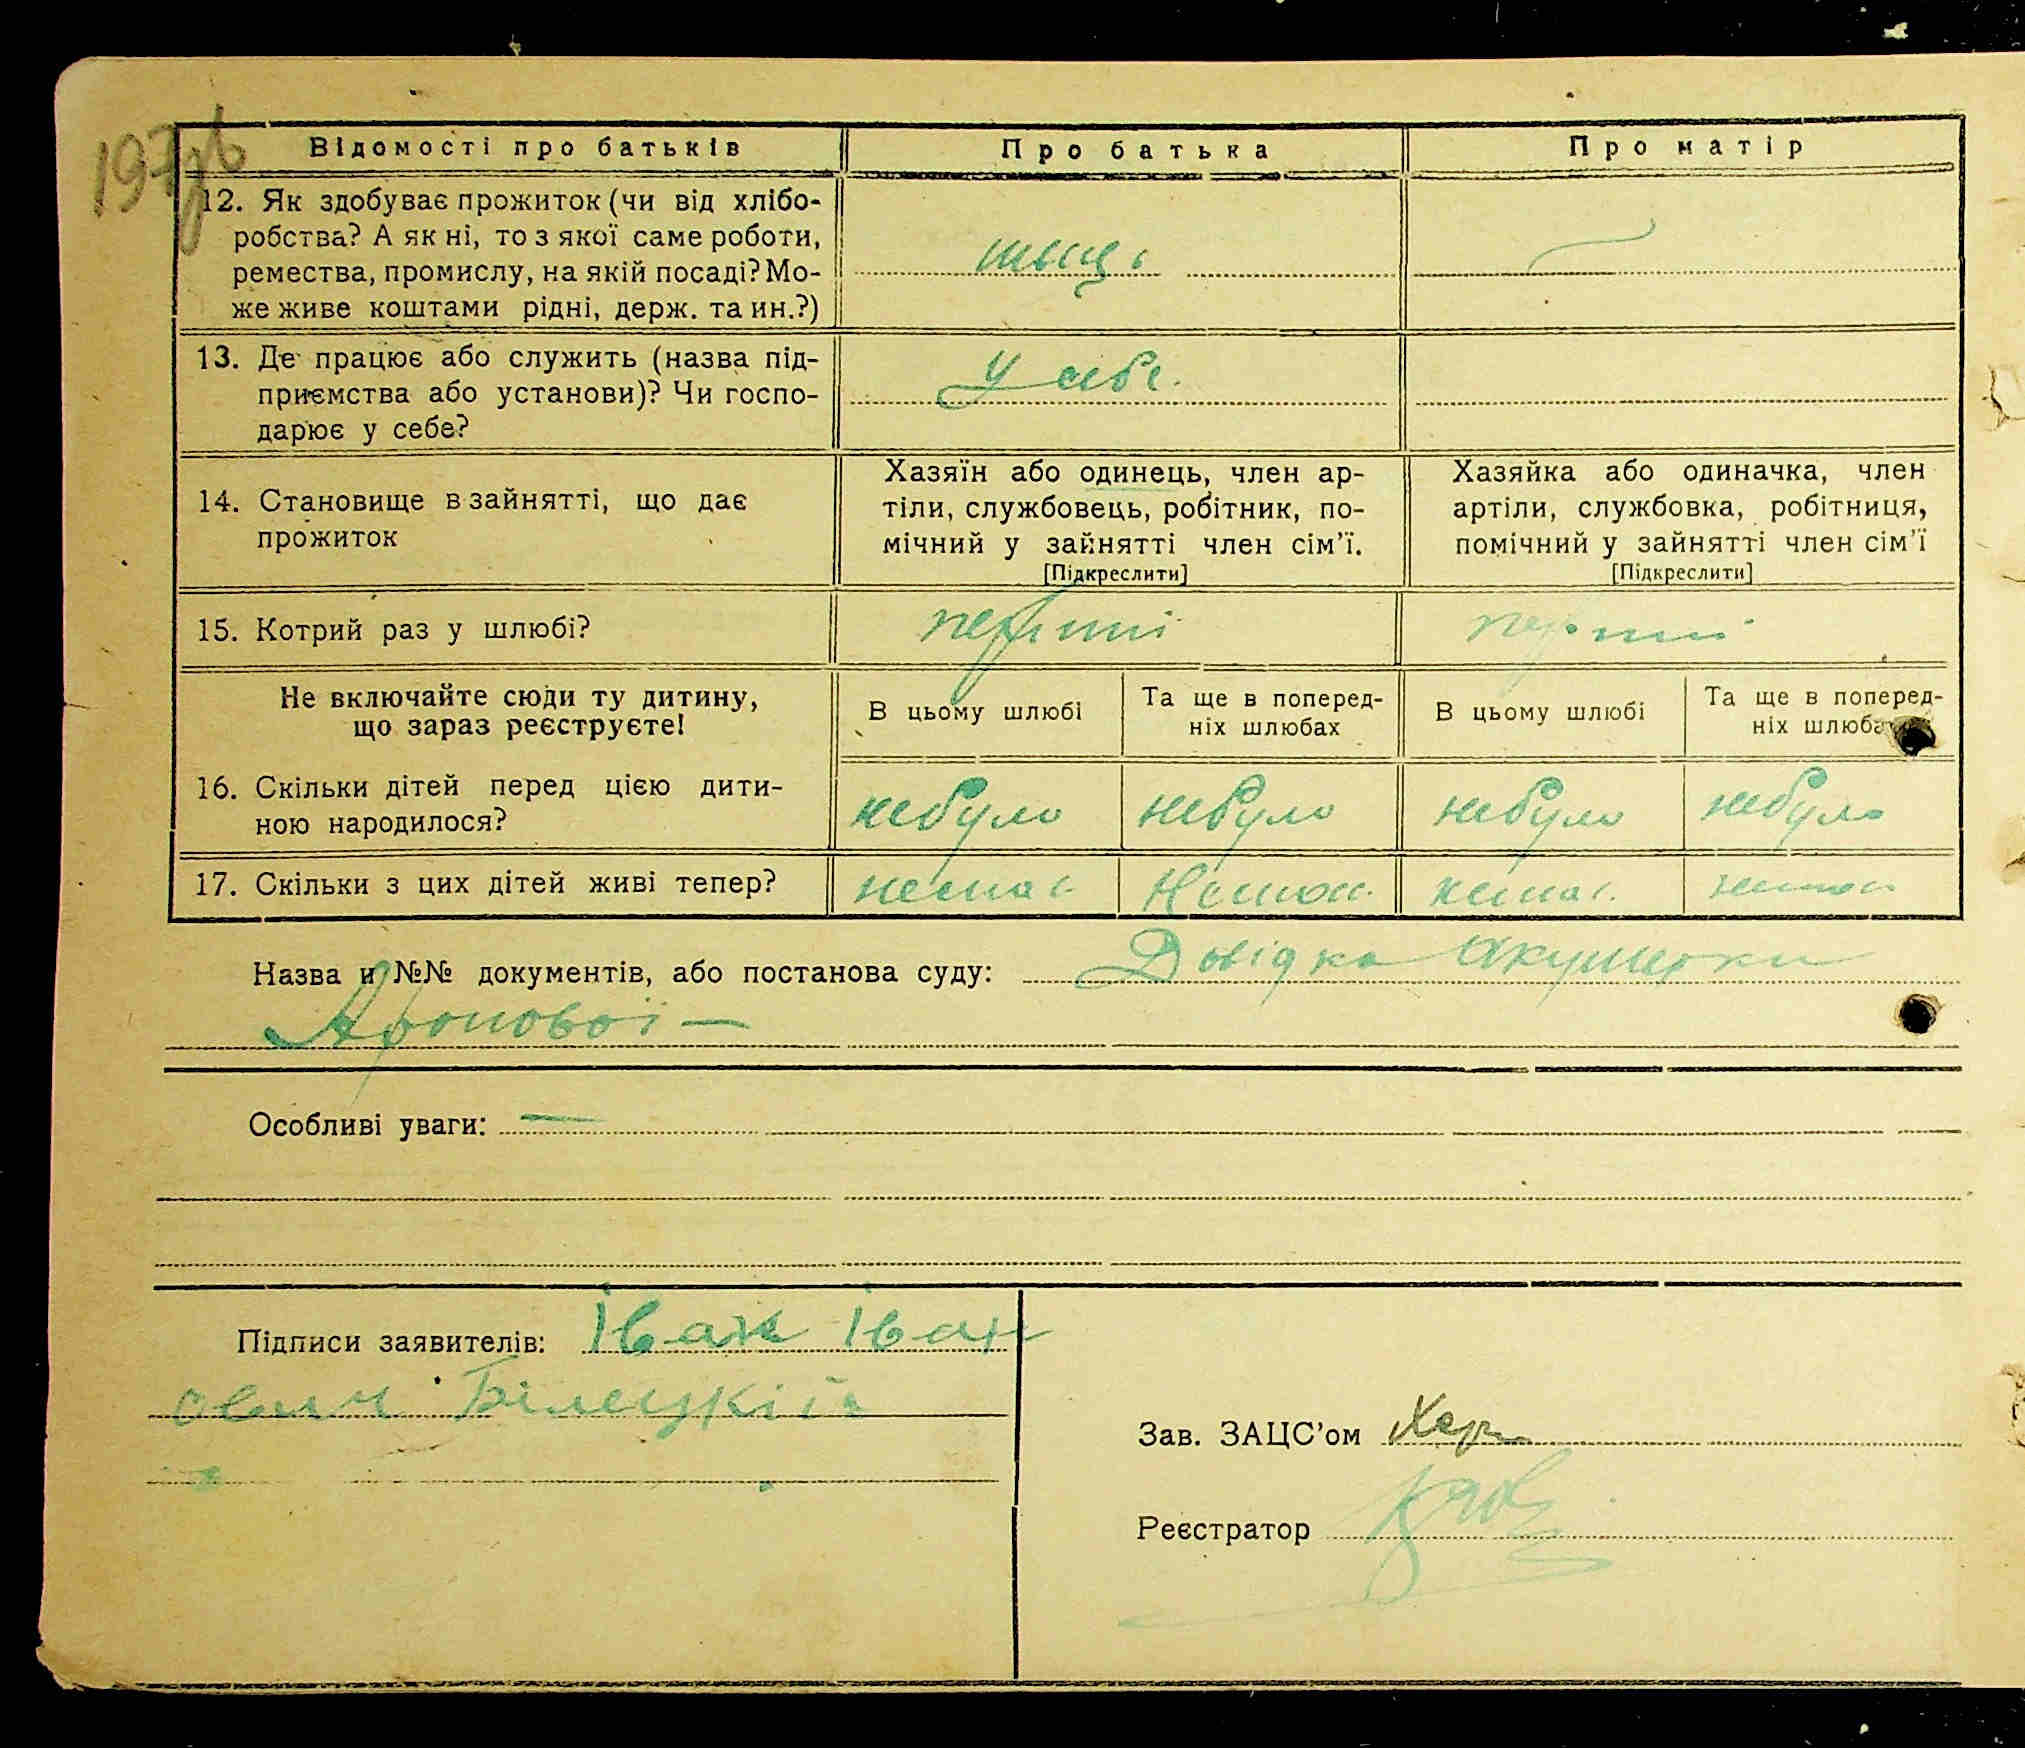 Відомості про батьків Про батька Про матір
12. Як здобуває прожиток (чи від хлібо-
робства? А як ні, то з якої саме роботи,
ремества, промислу, на якій посаді? Мо-
же живе коштами рідні, держ. та ин.?)
13. Де працює або служить (назва під-
приємства або установи)? Чи госпо-
дарює у себе?
у себе.
14. Становище в зайнятті, що дає
прожиток
Хазяїн або одинець, член ар-
тіли, службовець, робітник, по-
мічний у зайнятті член сім'ї.
[Підкреслити]
Хазяйка або одиначка, член
артіли, службовка, робітниця,
помічний у зайнятті член сім'ї
[Підкреслити]
15. Котрий раз у шлюбі? перший перший
Не включайте сюди ту дитину,
що зараз реєструєте!
В цьому шлюбі
Та ще в поперед-
ніх шлюбах
В цьому шлюбі
Та ще в поперед-
ніх шлюбах
16. Скільки дітей перед цією дити-
ною народилося?
небуло небуло небуло небуло
17. Скільки з цих дітей живі тепер? немає Немає немає немає
Назва и №№ документів, або постанова суду: Довідка Акушерки
Аронової —
Особливі уваги: —
Підписи заявителів: Іван Іван
ович Білецкій
Зав. ЗАЦС'ом
Реєстратор